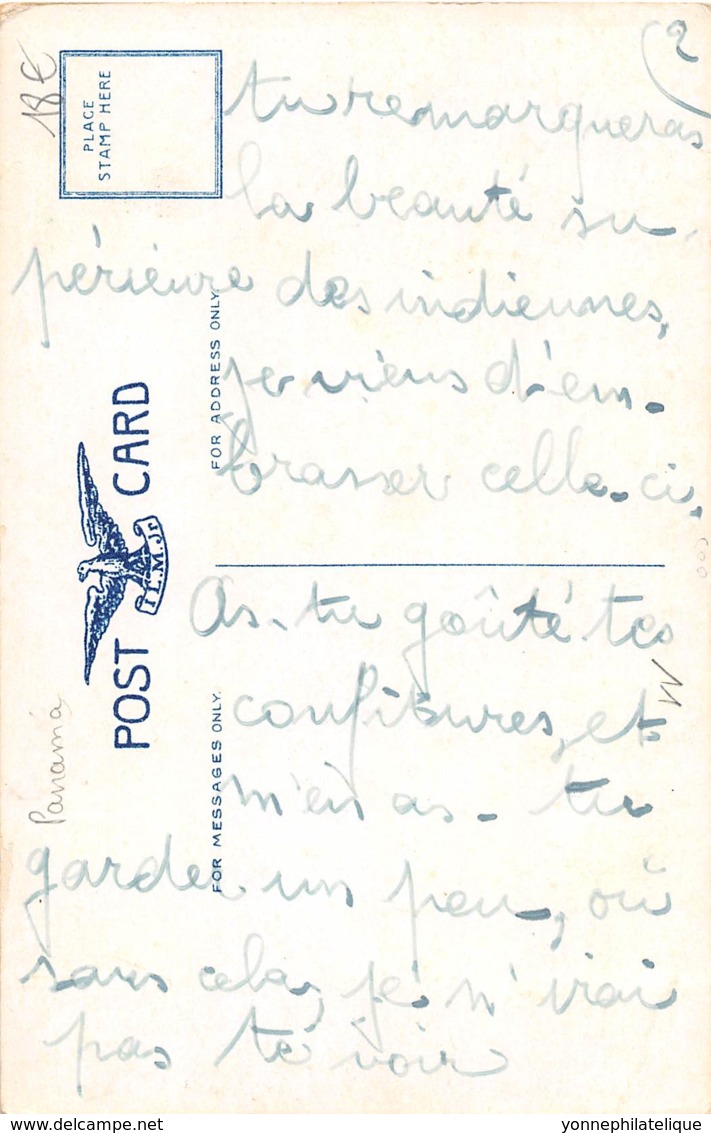 (2
18€
PLACE
STAMP HERE
tu remarqueras
la beauté su-
périeure des indiennes,
je viens d'em-
brasser celle-ci.
FOR ADDRESS ONLY.
POST CARD
I.L.M. Jr.
As-tu goûté tes
confitures, et
m'en as-tu
garder un peu, où
sans cela, je n'irai
pas te voir
FOR MESSAGES ONLY.
Panama
yonnephilatelique